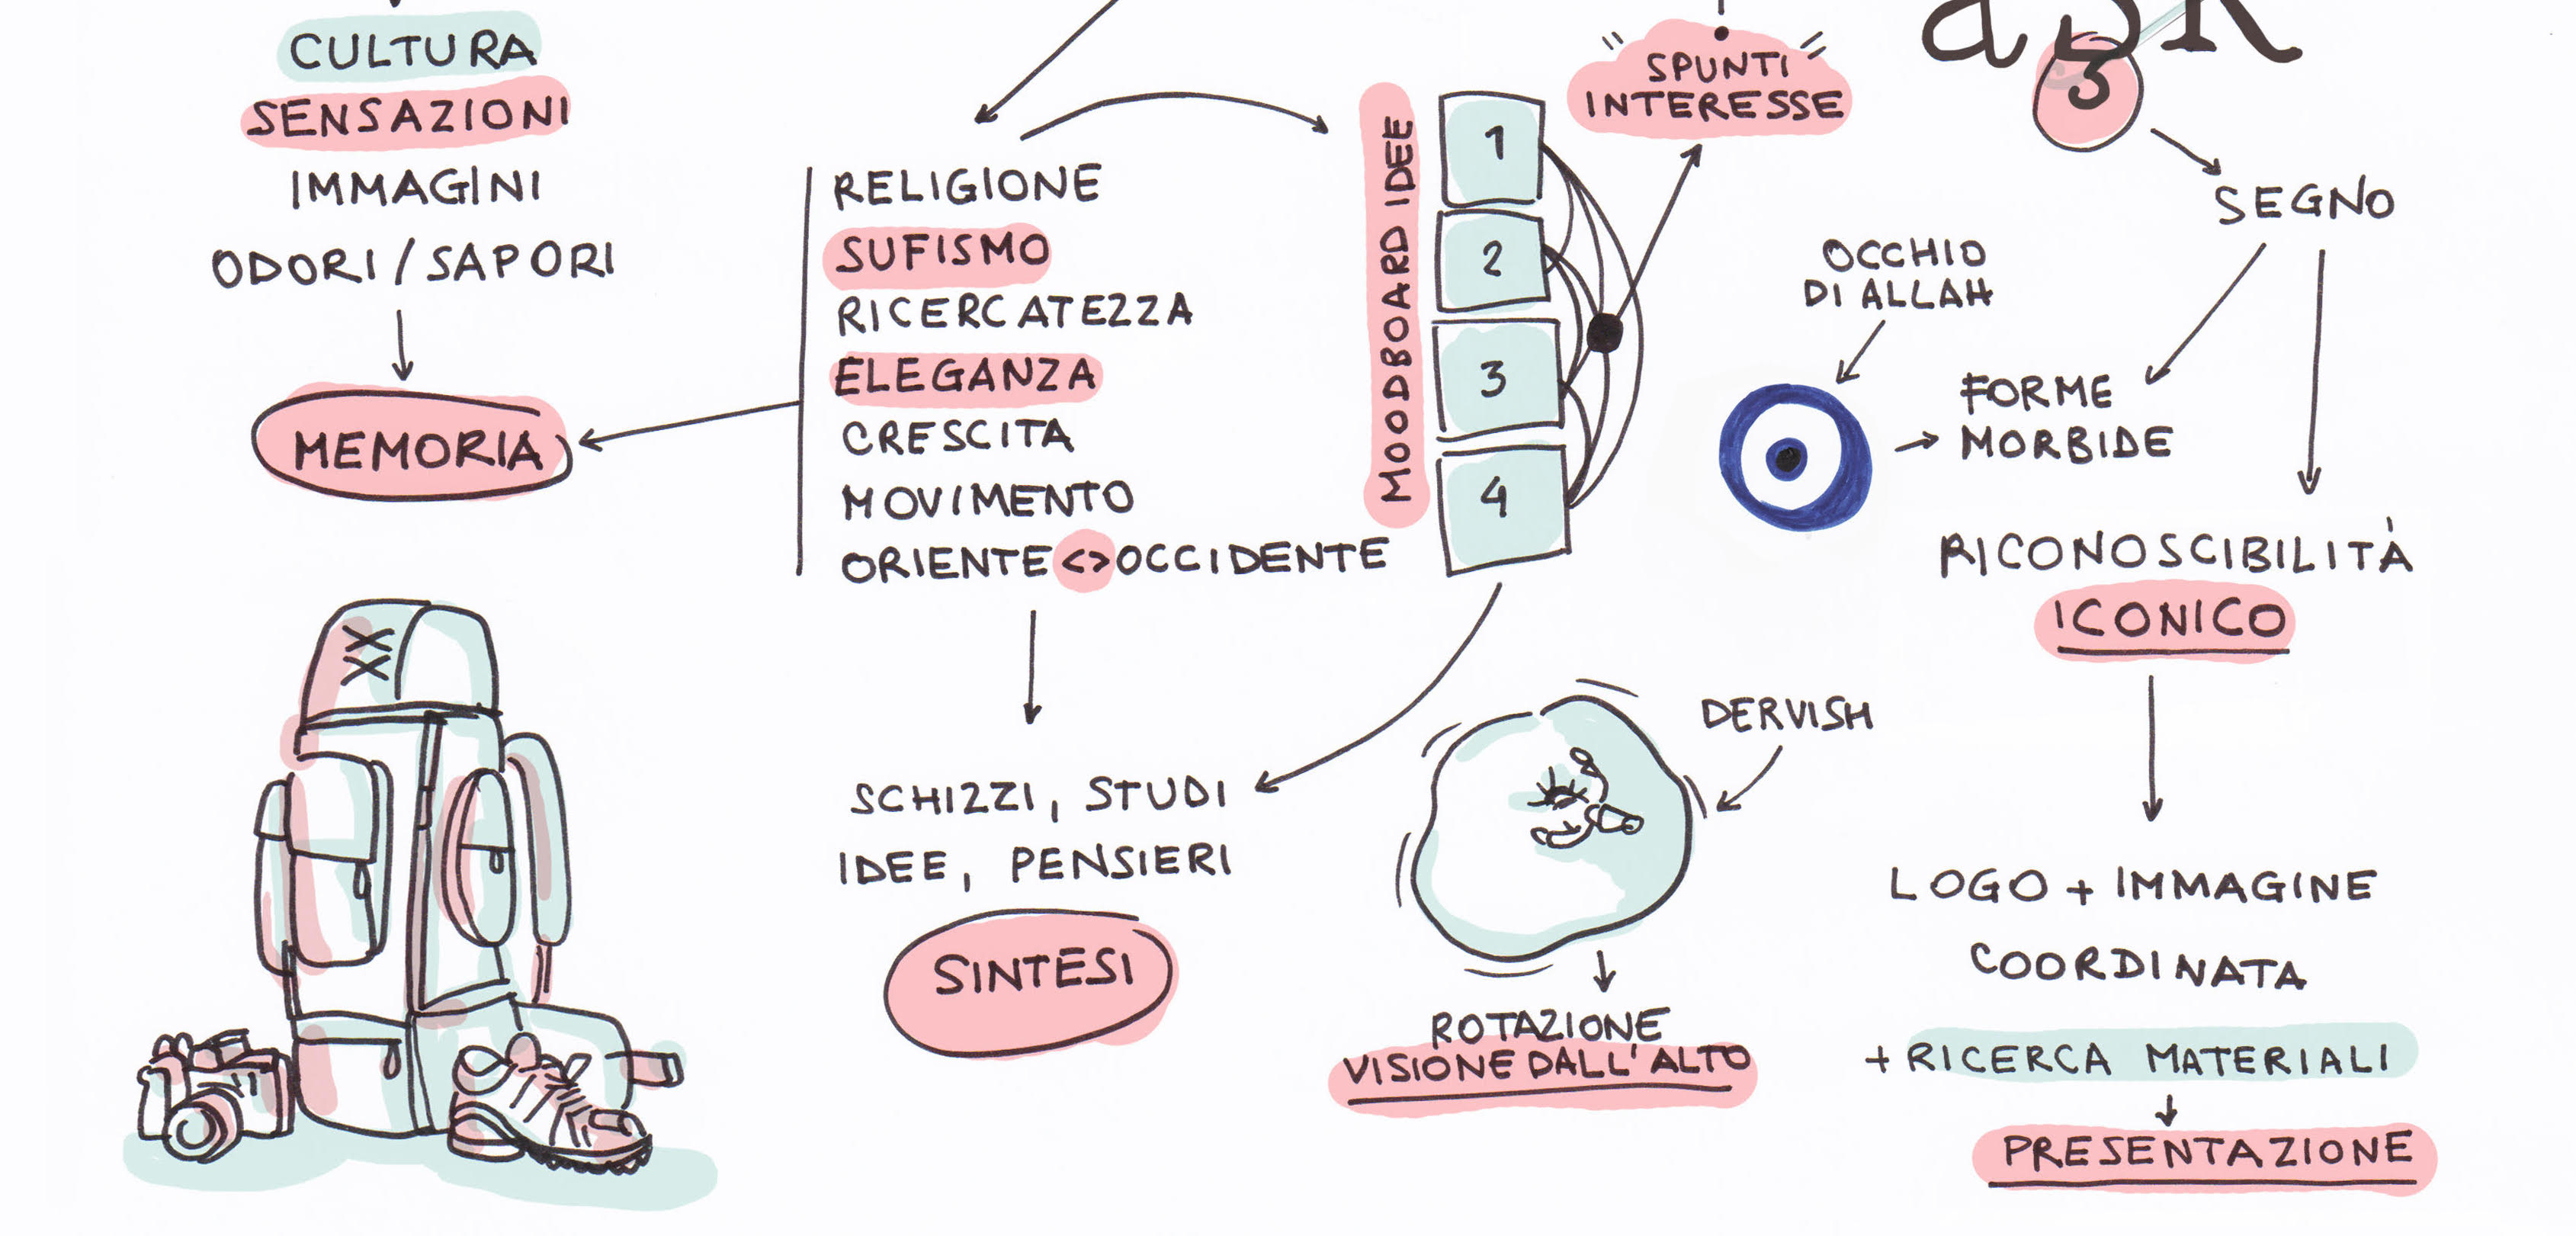 CULTURA
SENSAZIONI
IMMAGINI
ODORI / SAPORI
MEMORIA
RELIGIONE
SUFISMO
RICERCATEZZA
ELEGANZA
CRESCITA
MOVIMENTO
ORIENTE <> OCCIDENTE
SCHIZZI, STUDI
IDEE, PENSIERI
SINTESI
MOODBOARD IDEE
1
2
3
4
SPUNTI
INTERESSE
OCCHIO
DI ALLAH
DERVISH
ROTAZIONE
VISIONE DALL'ALTO
ask
3
SEGNO
FORME
MORBIDE
RICONOSCIBILITÀ
ICONICO
LOGO + IMMAGINE
COORDINATA
+ RICERCA MATERIALI
PRESENTAZIONE